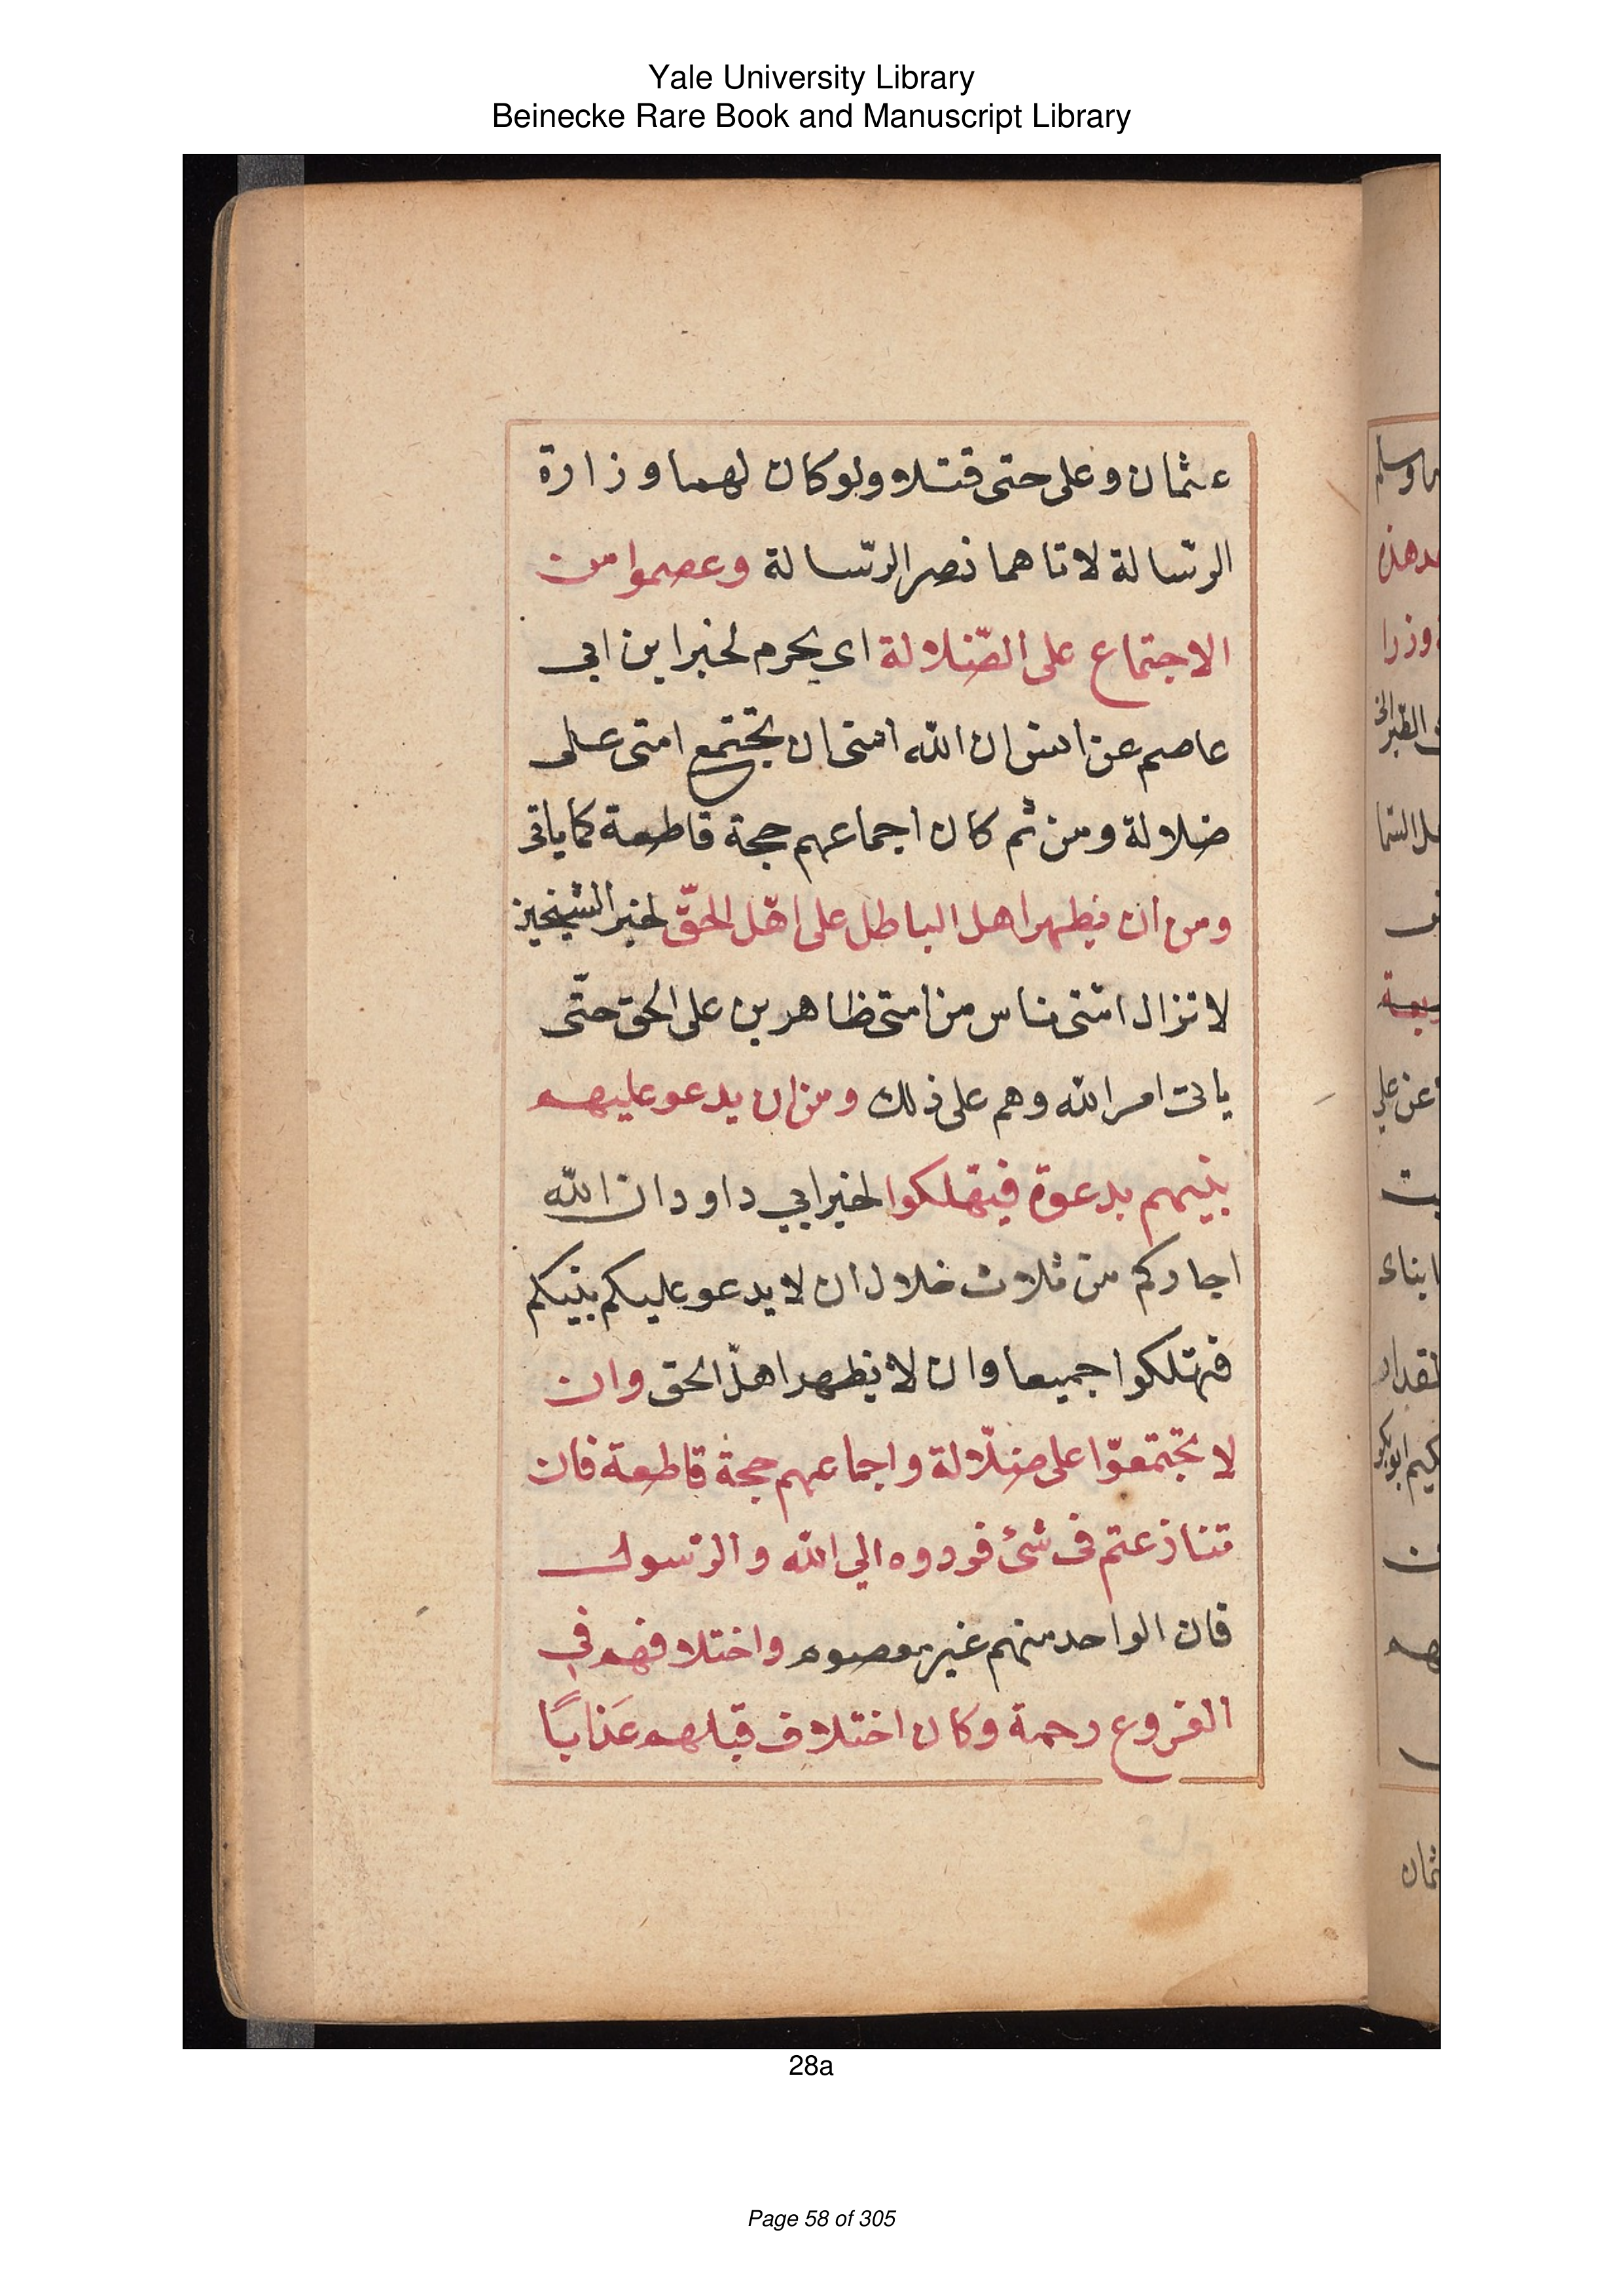 Yale University Library
Beinecke Rare Book and Manuscript Library
عثمان وعلى حتى قتلا ولو كان لهما وزارة
الرّسالة لاتاهما نصر الرّسالة وعصموا من
الاجتماع على الضّلالة اى يحرم لخبر ابن ابي
عاصم عن انس ان الله ان تجتمع امتى على
ضلالة ومن ثم كان اجماعهم حجة قاطعة كما ياتى
ومن ان يظهر اهل الباطل على اهل الحقّ لخبر الشيخين
لا تزال ناس من امتى ظاهرين على الحق حتّى
ياتى امر الله وهم على ذلك ومن ان يدعو عليهم
نبيهم بدعوة فيهلكوا لخبر ابي داود ان الله
اجاركم من ثلاث خلال ان لا يدعو عليكم نبيكم
فتهلكوا جميعا وان لا يظهر اهل الحق وان
لا تجتمعوا على ضلّالة واجماعهم حجة قاطعة فان
تنازعتم فى شئ فردوه الي الله والرّسول
فان الواحد منهم غير معصوم واختلافهم في
الفروع رحمة وكان اختلاف قبلهم عَذابًا
28a
Page 58 of 305